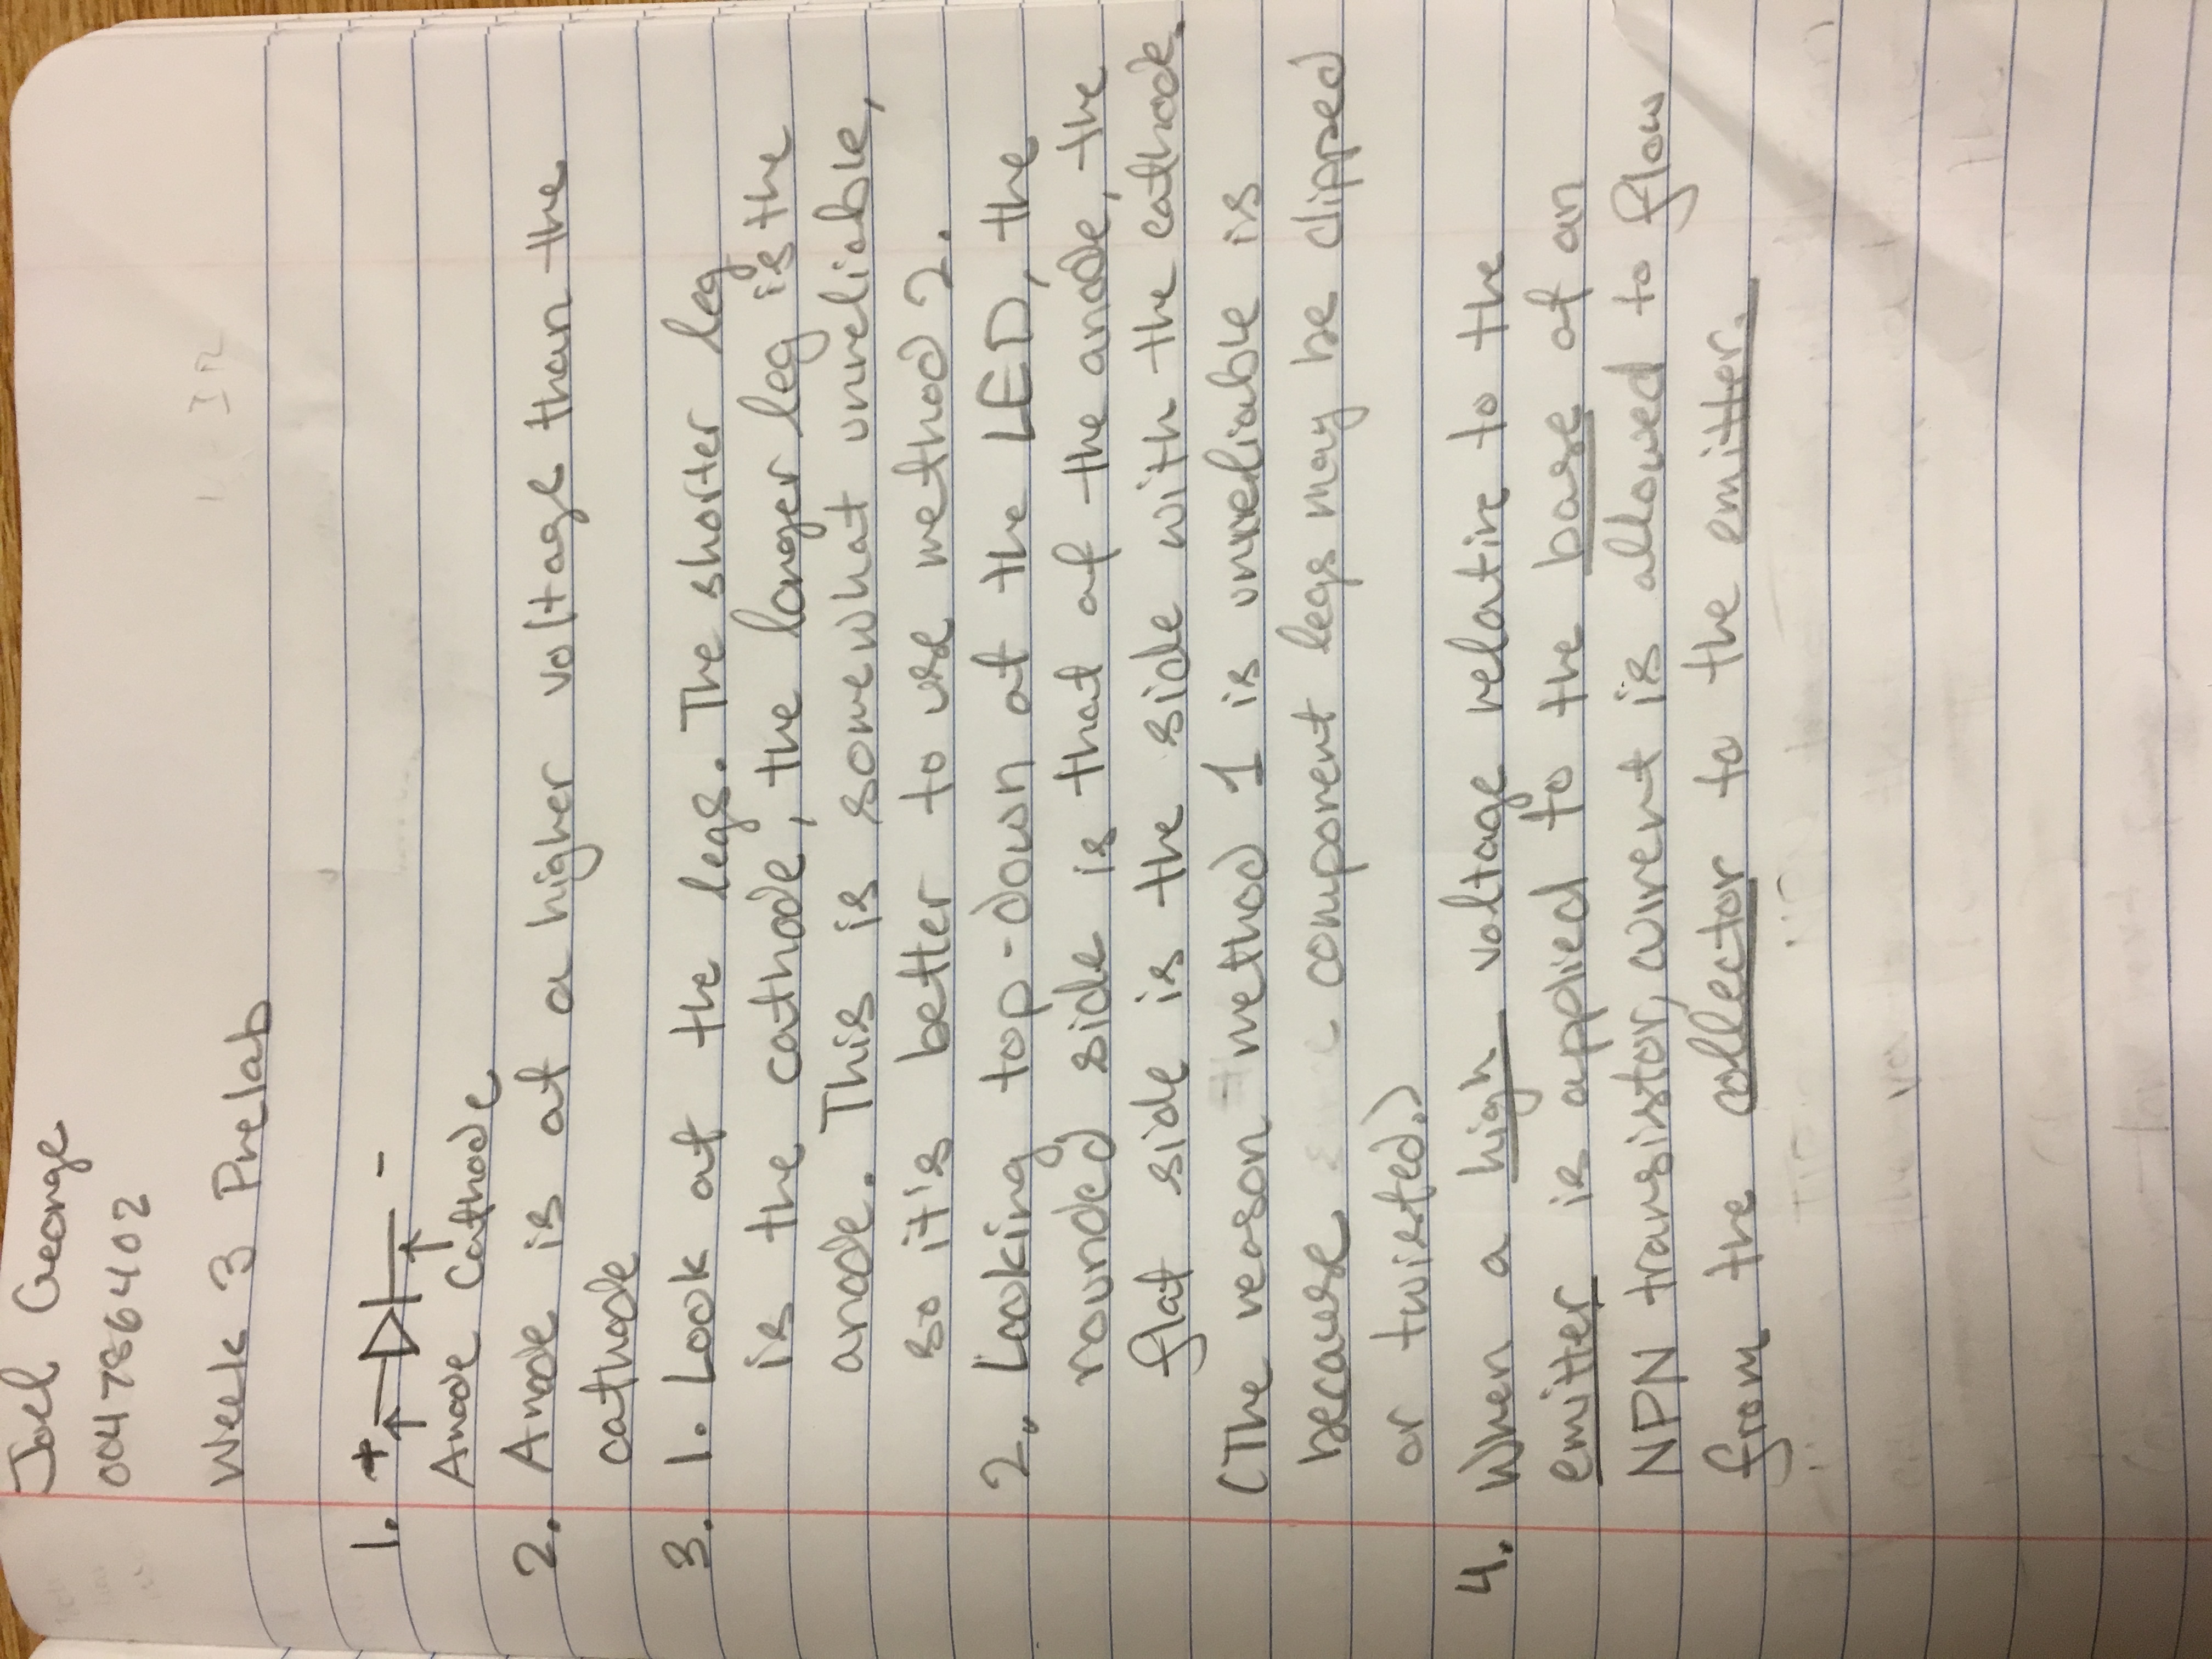 Joel George
004786402
Week 3 Prelab
1. + -
Anode Cathode
2. Anode is at a higher voltage than the
cathode
3. 1. Look at the legs. The shorter leg
is the cathode, the longer leg is the
anode. This is somewhat unreliable,
so it's better to use method 2.
2. Looking top-down at the LED, the
rounded side is that of the anode, the
flat side is the side with the cathode.
(The reason method 1 is unreliable is
because component legs may be clipped
or twisted.)
4. When a high voltage relative to the
emitter is applied to the base of an
NPN transistor, current is allowed to flow
from the collector to the emitter.